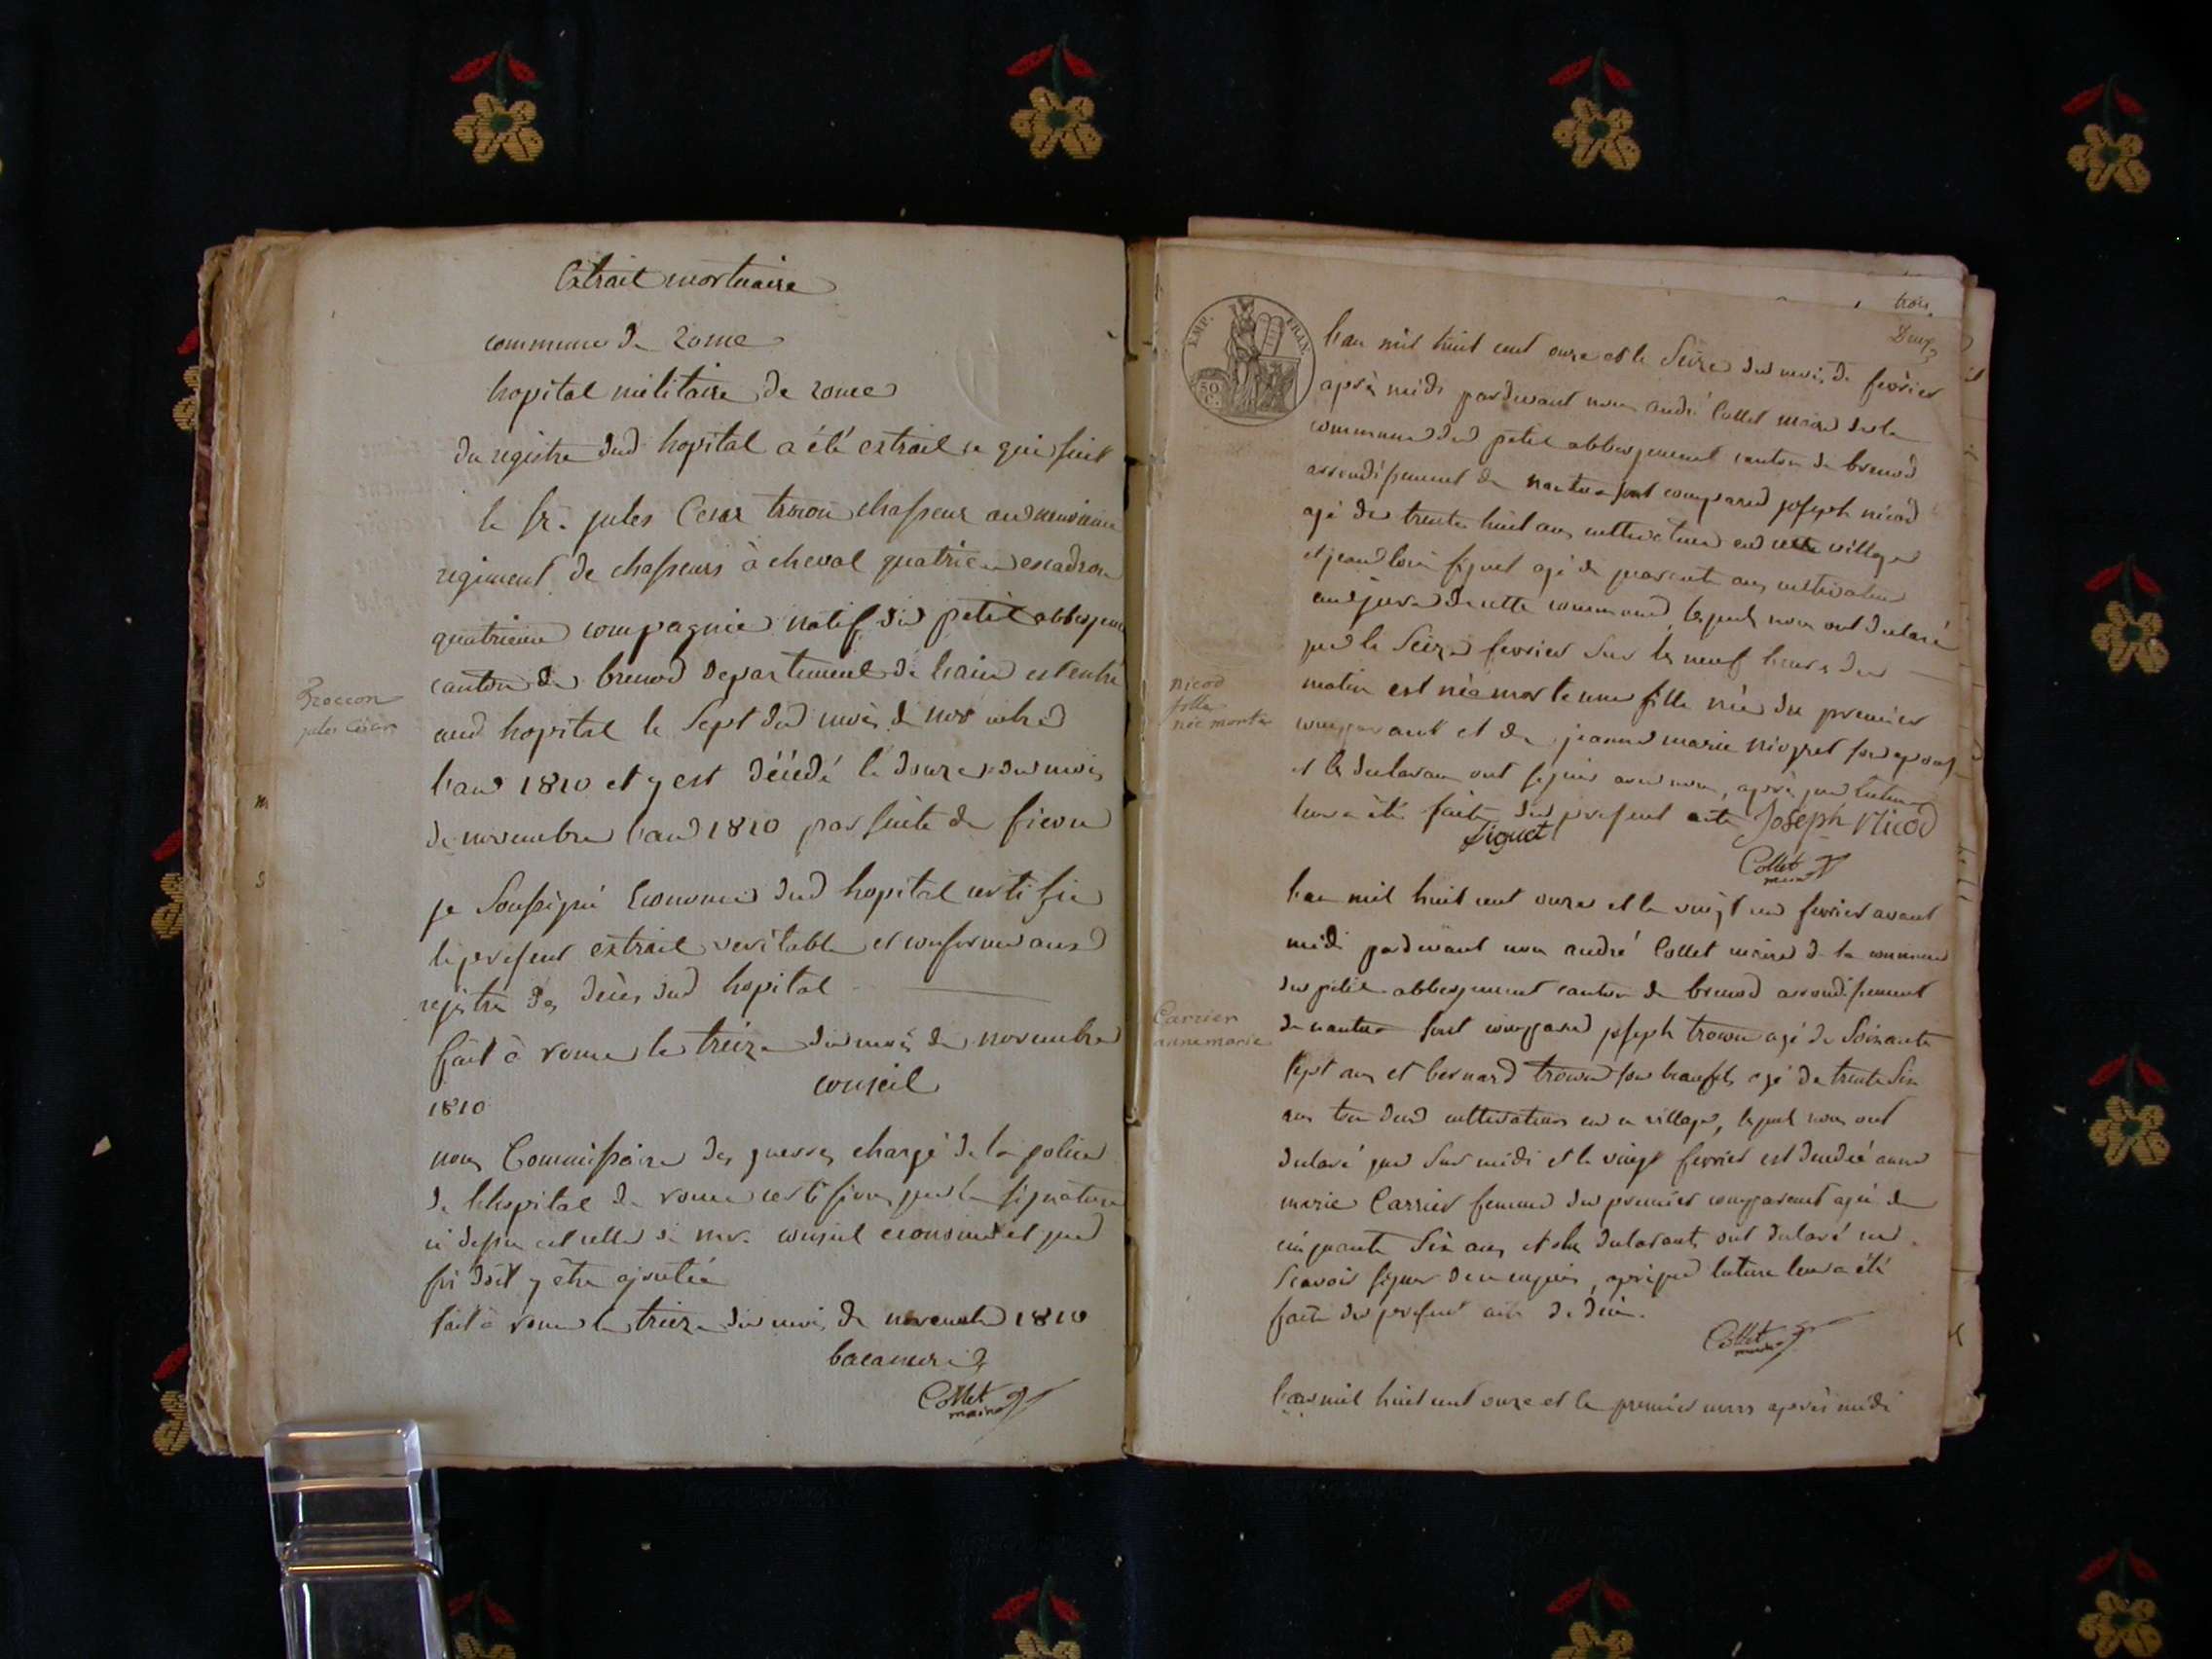 Extrait mortuaire
commune de rome
hopital militaire de rome
du registre dud hopital a été extrait ce qui suit
le sr. jules Cesar trocon chasseur au neuvieme
regiment de chasseurs à cheval quatrieme escadron
quatrieme compagnie natif du petit abbergement
canton de brenod departement de l'ain est entré
aud hopital le sept du mois de novembre
l'an 1810 et y est décédé le douze du mois
de novembre l'an 1810 par suite de fievre
je soussigné Econome dud hopital certifie
le present extrait veritable et conforme aud
registre des décès dud hopital
fait à rome le treize du mois de novembre
1810
conseil
nous Commissaire des guerres chargé de la police
de l'hopital de rome certifions que la signature
ci dessus est celle de mr. conseil econome et que
foi doit y être ajoutée
fait à rome le treize du mois de novembre 1810
Collet
maire
Trocon
jules César
trois
Deux
EMP. FRAN.
50 C.
l'an mil huit cent onze et le seize du mois de fevrier
après midi pardevant nous andré Collet maire de la
commune du petit abbergement canton de brenod
arrondissement de nantua sont comparus joseph nicod
agé de trente huit ans cultivateur en cette village
et jean louis siguet agé de quarante ans cultivateur
de cette commune, lesquels nous ont declaré
que le seize fevrier sur les neuf heures du
matin est née morte une fille née du premier
comparant et de jeanne marie niogret son epouse
et les declarans ont signé avec nous, après que lecture
leur a été faite du present acte Joseph Nicod
Siguet
Collet
maire
nicod
fille
née morte
l'an mil huit cent onze et le vingt un fevrier avant
midi pardevant nous andré Collet maire de la commune
du petit abbergement canton de brenod arrondissement
de nantua sont comparus joseph trocon agé de soixante
sept ans et bernard trocon son beaufils agé de trente six
ans tous deux cultivateurs en ce village, lesquels nous ont
declaré que sur midi et le vingt fevrier est decedée anne
marie Carrier femme du premier comparant agée de
cinquante six ans et les declarants ont declaré ne
scavoir signer de ce enquis, après que lecture leur a été
faite du present acte de décès.
Collet
maire
Carrier
anne marie
l'an mil huit cent onze et le premier mars après midi